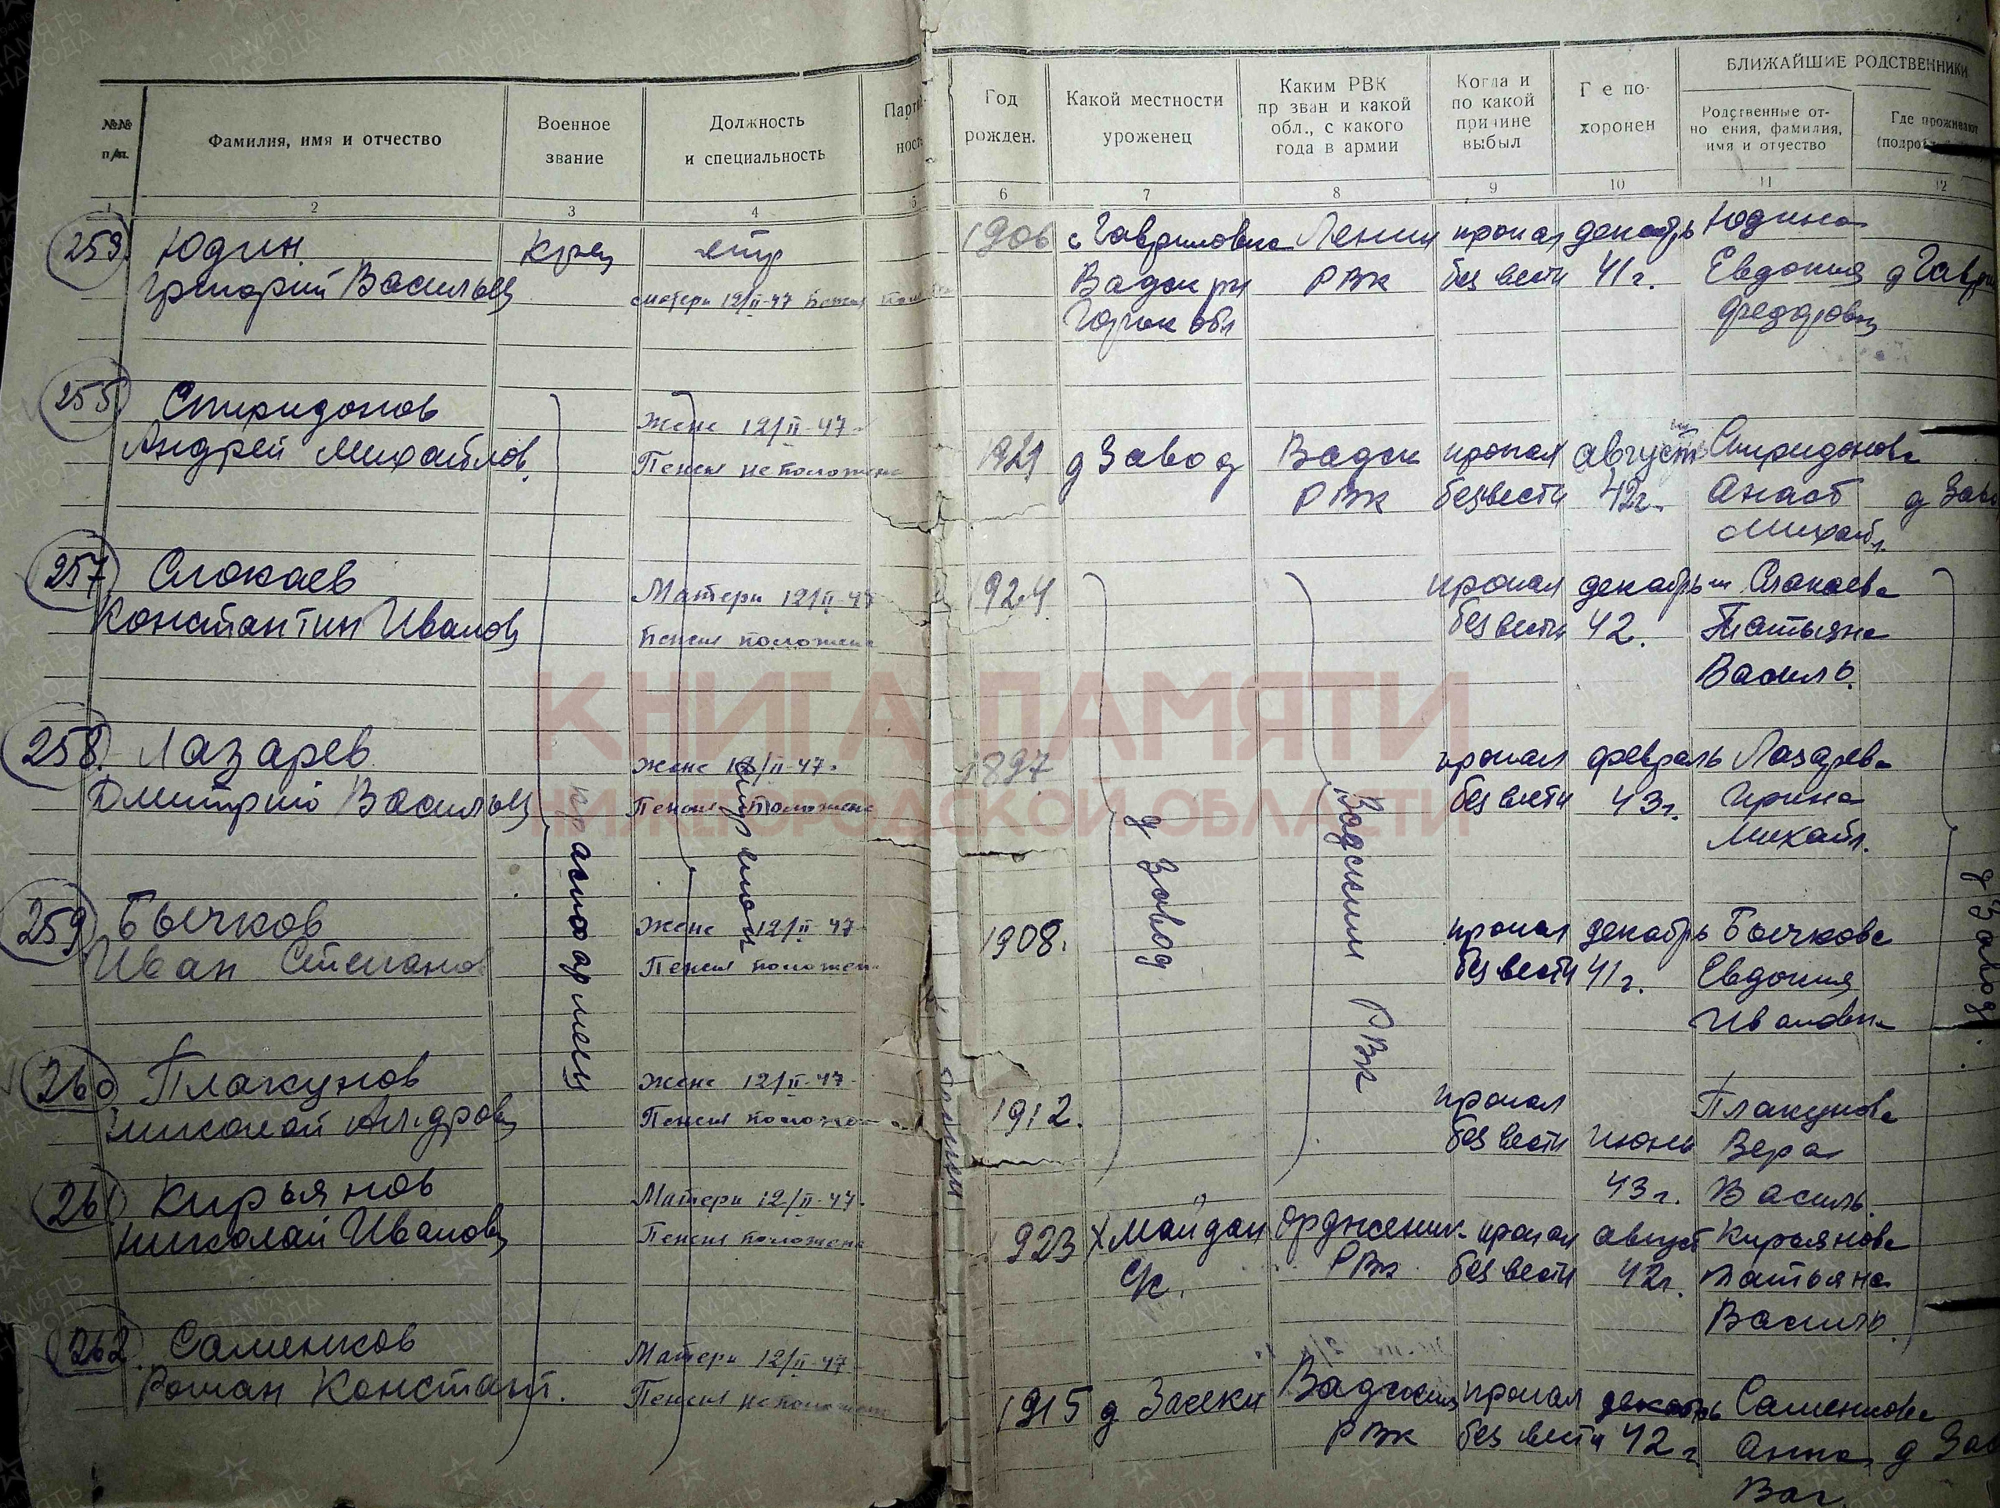 БЛИЖАЙШИЕ РОДСТВЕННИКИ
№№ п/п.
Фамилия, имя и отчество
Военное звание
Должность и специальность
Год рожден.
Какой местности уроженец
Каким РВК пр зван и какой обл., с какого года в армии
Когда и по какой причине выбыл
Г е по- хоронен
Родственные от- но ения, фамилия, имя и отчество
Где проживают
1 2 3 4 5 6 7 8 9 10 11 12
Юдин 1906 с Гавриловка Ленин пропал декабрь Юдина
Григорий Васильев Пенсия Вадск рн РВК без вести 41 г. Евдокия д Гаври
Горьк обл Федоровн
255 Спиридонов Жене 12/II-47
Андрей Михайлов. Пенсия не положена 1921 д Завод Вадск пропал август Спиридонова
РВК без вести 42г. Анаст д Заво
Михайл.
257 Слокаев Матери 12/II-47 1924. пропал декабрь Слокаева
Константин Иванов Пенсия положена без вести 42. Татьяна
Василь.
258. Лазарев Жене 12/II-47. 1897 пропал февраль Лазарева
Дмитрий Васильев Пенсия положена без вести 43г. Ирина
Михайл.
красноармеец
стрелкой
д Завод
Вадским РВК
д Завод.
259 Бычков Жене 12/II-47 1908. пропал декабрь Бычкова
Иван Степанов Пенсия положен без вести 41 г. Евдокия
Ивановна
260 Плакунов Жене 12/II-47 1912. пропал Плакунова
Николай Ал-дров Пенсия положе без вести июнь Вера
43 г. Василь.
261 Кирьянов Матери 12/II-47.
Николай Иванов Пенсия положена 923 Х Майдан Орджоник- пропал август Кирьянова
с/с. РВК без вести 42г. Татьяна
Василь.
262. Саменков Матери 12/II-47
Роман Констант. Пенсия не положен 1915 д Засеки Вадским пропал декабрь Саменкова
РВК без вести 42 г Анна д Зав
Вас
КНИГА ПАМЯТИ
НИЖЕГОРОДСКОЙ ОБЛАСТИ
ПАМЯТЬ НАРОДА